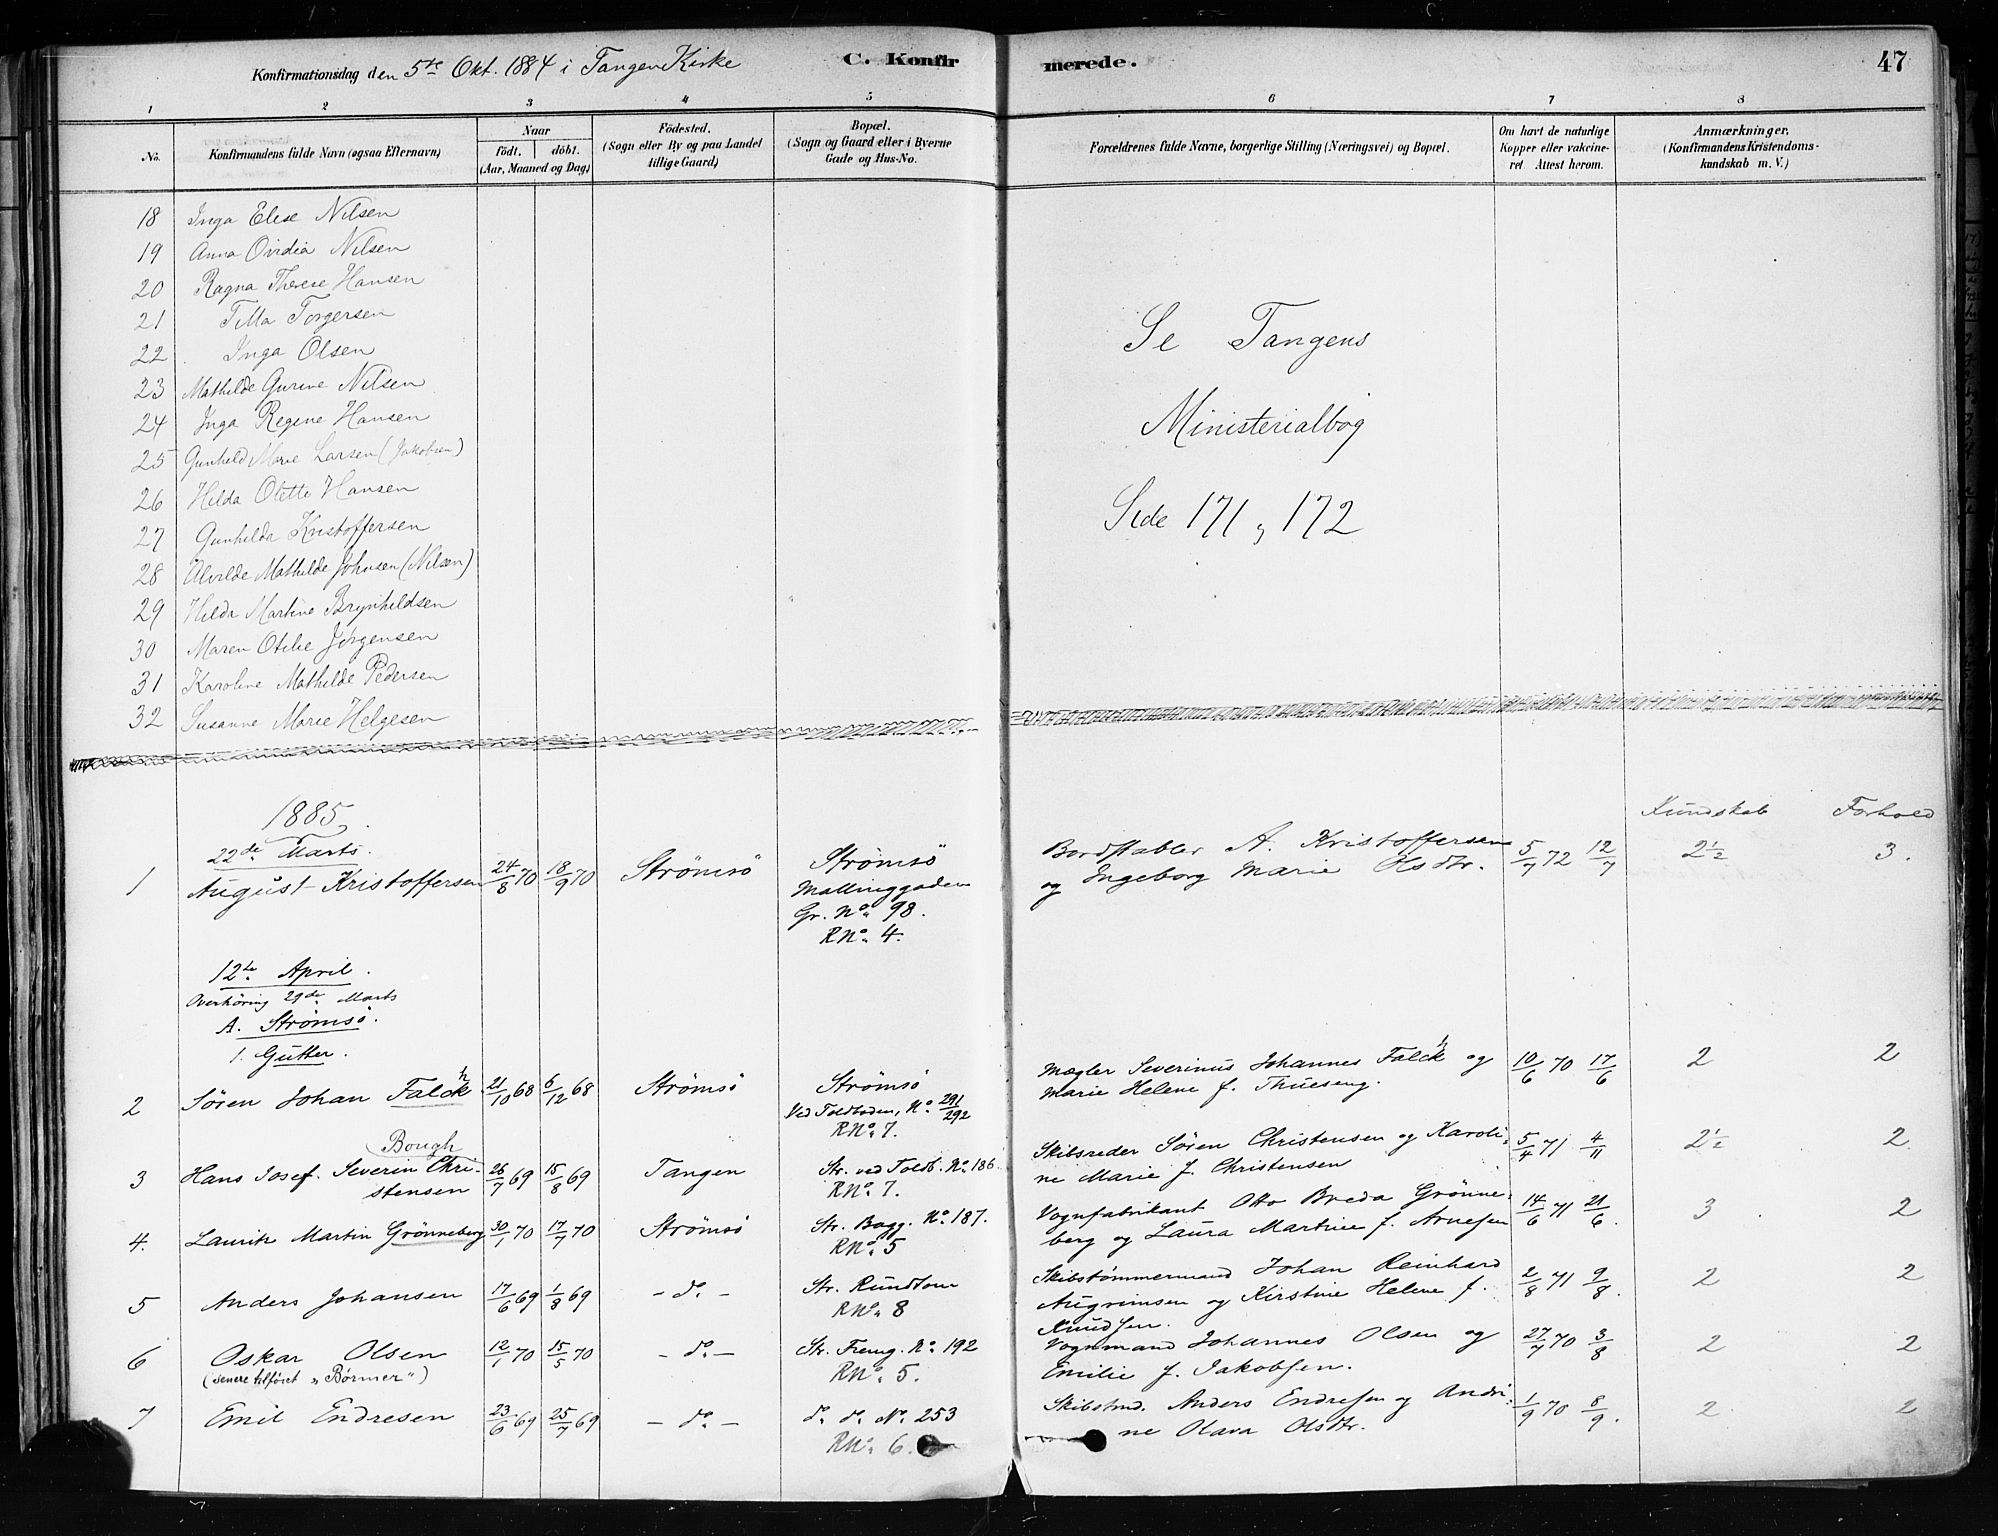 Konfirmationsdag den 5te Okt. 1884 i Tangen Kirke
C. Konfirmerede.
47
1 2 3 4 5 6 7 8
No.
Konfirmandens fulde Navn (ogsaa Efternavn)
Naar
födt. döbt.
(Aar, Maaned og Dag)
Födested.
(Sogn eller By og paa Landet
tillige Gaard)
Bopæl.
(Sogn og Gaard eller i Byerne
Gade og Hus-No.
Forældrenes fulde Navne, borgerlige Stilling (Næringsvei) og Bopæl.
Om havt de naturlige
Kopper eller vakcine-
ret Attest herom.
Anmærkninger.
(Konfirmandens Kristendoms-
kundskab m. V.)
18 Inga Elise Nilsen
19 Anna Ovidia Nilsen
20 Ragna Therese Hansen
21 Tilla Torgersen
22 Inga Olsen
23 Mathilde Gurine Nilsen
24 Inga Regine Hansen
25 Gunhild Marie Larsen (Jakobsen)
26 Hilda Olette Hansen
27 Gunhilda Kristoffersen
28 Alvilde Mathilde Johnsen (Nilsen)
29 Hilda Martine Brynhildsen
30 Maren Otilie Jørgensen
31 Karoline Mathilde Pedersen
32 Susanne Marie Helgesen
Se Tangens
Ministerialbog
Side 171, 172
1885
22de Marts.
Kundskab Forhold
1 August Kristoffersen 24/8 70 18/9 70 Strömsö
Strömsö
Mallinggaden
Gr. No. 98.
RNo. 4.
Bordstabler A. Kristoffersen
og Ingeborg Marie Olsdtr.
5/7 72 12/7 2½ 3.
12te April.
Overhöring 29de Marts
A. Strömsö.
1. Gutter.
2 Sören Johan Falck 21/10 68 6/12 68 Strömsö
Strömsö
Ved Toldboden, No. 291/292
RNo. 7.
Mægler Severinus Johannes Falck og
Marie Helene f. Thueseng.
10/6 70 17/6 2 2
Bough
3 Hans Josef Severin Chri-
stensen 26/7 69 15/8 69 Tangen
Str. ved Toldb. No. 186.
RNo. 7.
Skibsreder Sören Christensen og Karoli-
ne Marie f. Christensen
5/4 71 4/11 2½ 2
4. Laurik Martin Grönneberg 30/1 70 17/7 70 Strömsö
Str. Bagg. No. 187.
RNo. 5
Vognfabrikant Otto Breda Grönne-
berg og Laura Martine f. Arnesen
14/6 71 21/6. 3 2
5 Anders Johansen 17/6 69 1/8 69 - do. -
Str. Rundtom
RNo. 8
Skibstømmermand Johan Reinhard
Augrimsen og Kirstine Helene f.
Knudsen.
2/8 71 9/8. 2 2
6 Oskar Olsen 12/1 70 15/5 70 - do. -
(senere tilföiet „Börmer")
Str. Fremg. No. 192
RNo. 5.
Vognmand Johannes Olsen og
Emilie f. Jakobsen.
27/7 70 3/8 2 2
7 Emil Endresen 23/6 69 25/7 69 - do. -
do. do. No. 253
RNo. 6.
Skibstmd. Anders Endresen og Andri-
ne Olava Olsdtr.
1/9 70 8/9. 2. 2